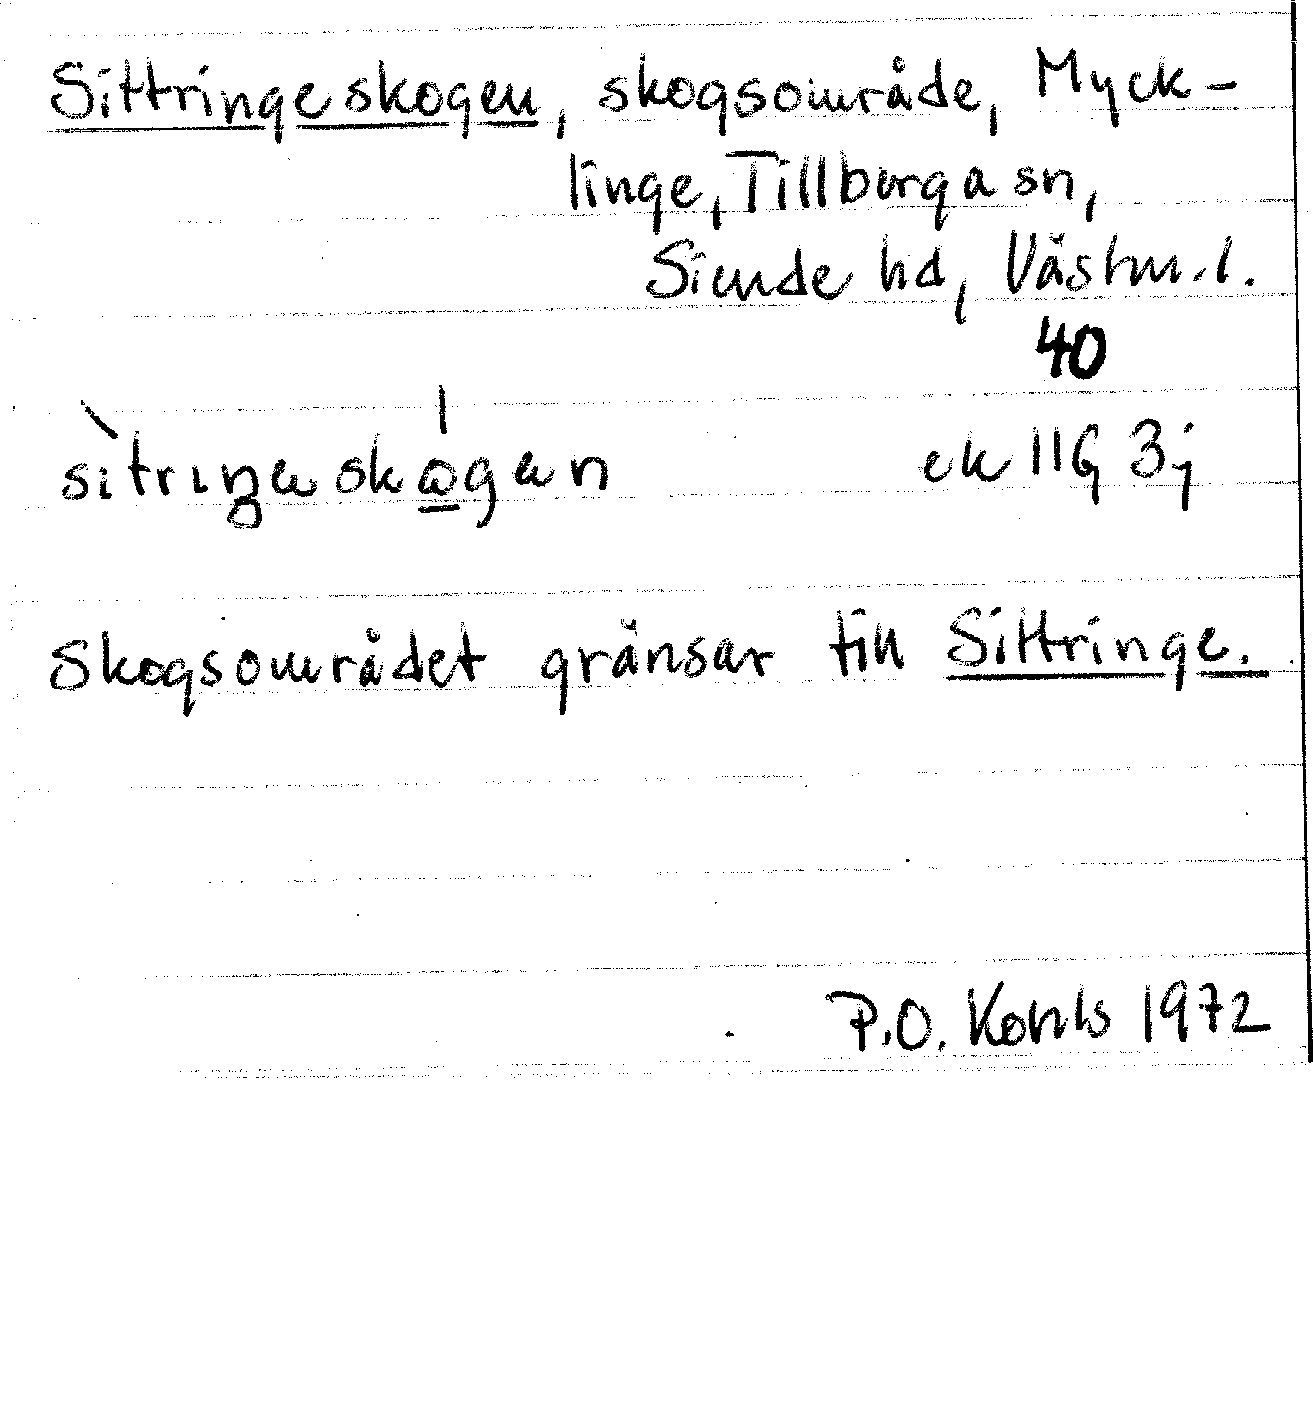 Sittringeskogen, skogsområde, Myck-
linge, Tillberga sn,
Siende hd, Västm.l.
40
ek 11G 3j
Skogsområdet gränsar till Sittringe.
P.O. 1972